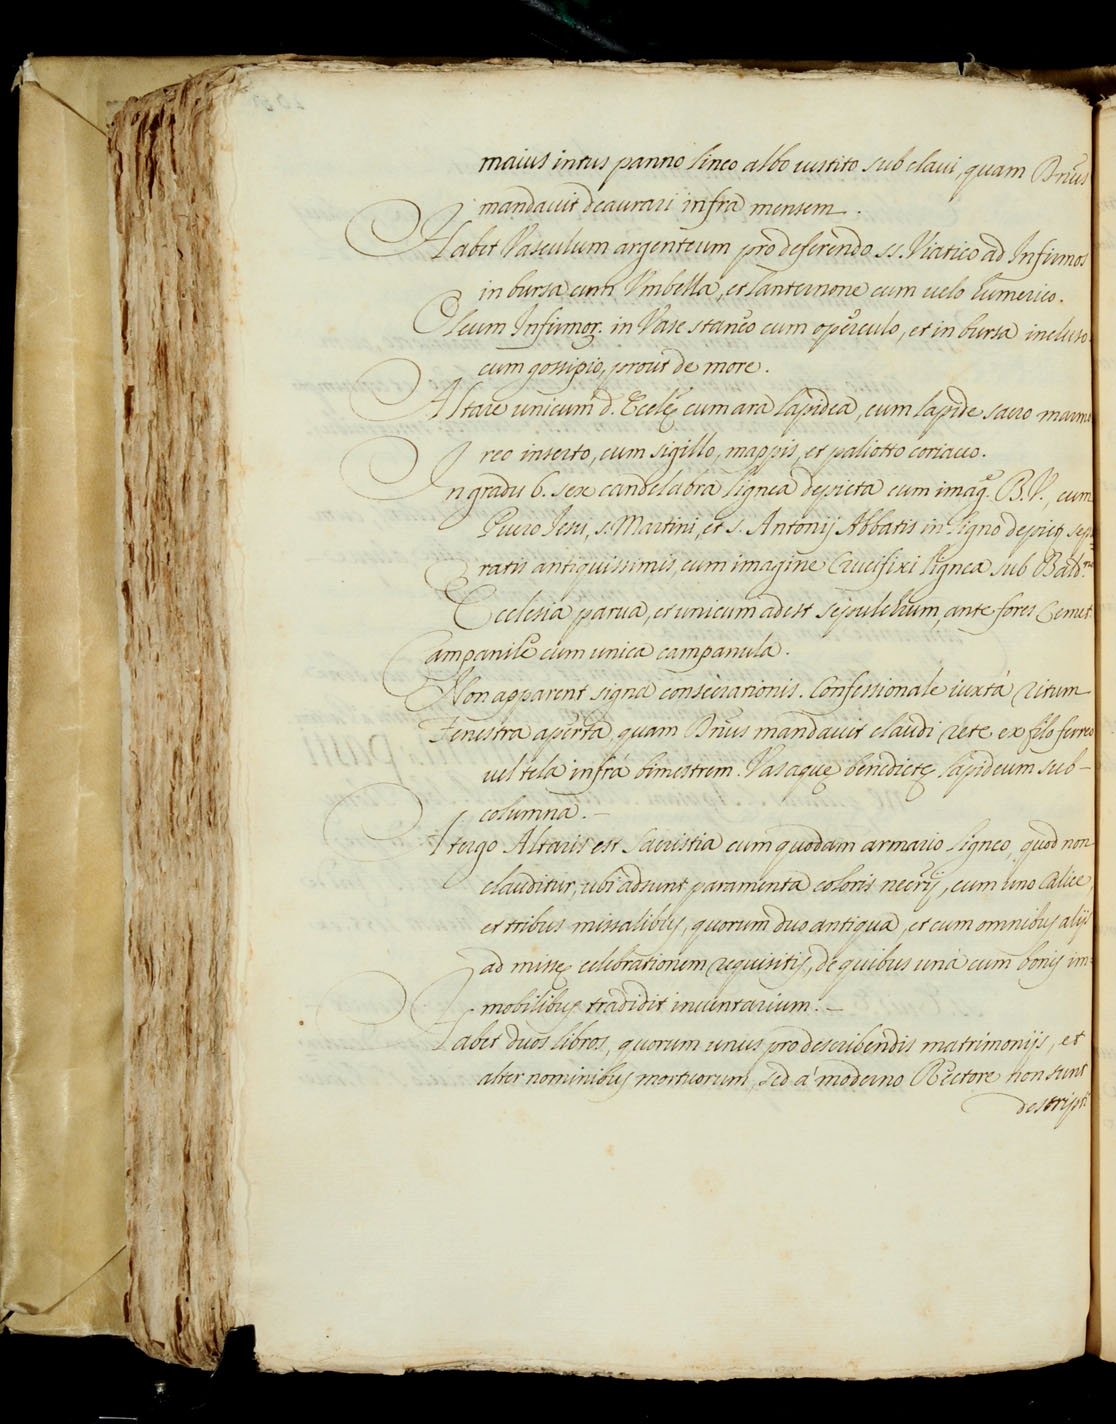 maius intus panno lineo albo vestito sub claui, quam D̃nus
mandauit deaurari infra mensem.
Habet Vasculum argenteum pro deferendo ss. Viatico ad Infirmos
in bursa cum Vmbella, et lanternone cum uelo humerico.
Oleum Infirmor. in Vase staneo cum operculo, et in bursa incluso
cum gossipio, prout de more.
Altare unicum d. Eccleę cum ara lapidea, cum lapide sacro marmo
reo inserto, cum sigillo, mappis, et paliotto coriaceo.
In gradu 6. sex candelabra lignea depicta cum imag. B. V., cum
Puero Iesu, s. Martini, et s. Antonij Abbatis in ligno depict sepa
ratis antiquissimis, cum imagine Crucifixi lignea sub Bald.no
Ecclesia parua, et unicum adest sepulchrum, ante fores Cemet.
Campanile cum unica campanula.
Non apparent signa consecrationis. Confessionale iuxta ritum
Fenestra aperta, quam D̃nus mandauit claudi rete ex filo ferreo
uel tela infra bimestrem. Vas aquę benedictę lapideum sub-
columna.-
A tergo Altaris est Sacristia cum quodam armario ligneo, quod non
clauditur, ubi adsunt paramenta coloris necrij, cum uno Calice,
et tribus missalibus, quorum duo antiqua, et cum omnibus alijs
ad missę celebrationem requisitis, de quibus una cum bonis im-
mobilibus tradidit inuentarium.-
Habet duos libros, quorum unus pro describendis matrimonijs, et
alter nominibus mortuorum, sed a moderno Rectore non sunt
descript.